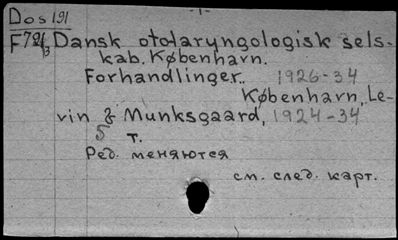 Dos 191
Dansk otolaryngologisk sels-
kab. København.
Forhandlinger. 1926-34
København, Le-
vin & Munksgaard, 1924-34
5 т.
Ред. меняются
см. след. карт.